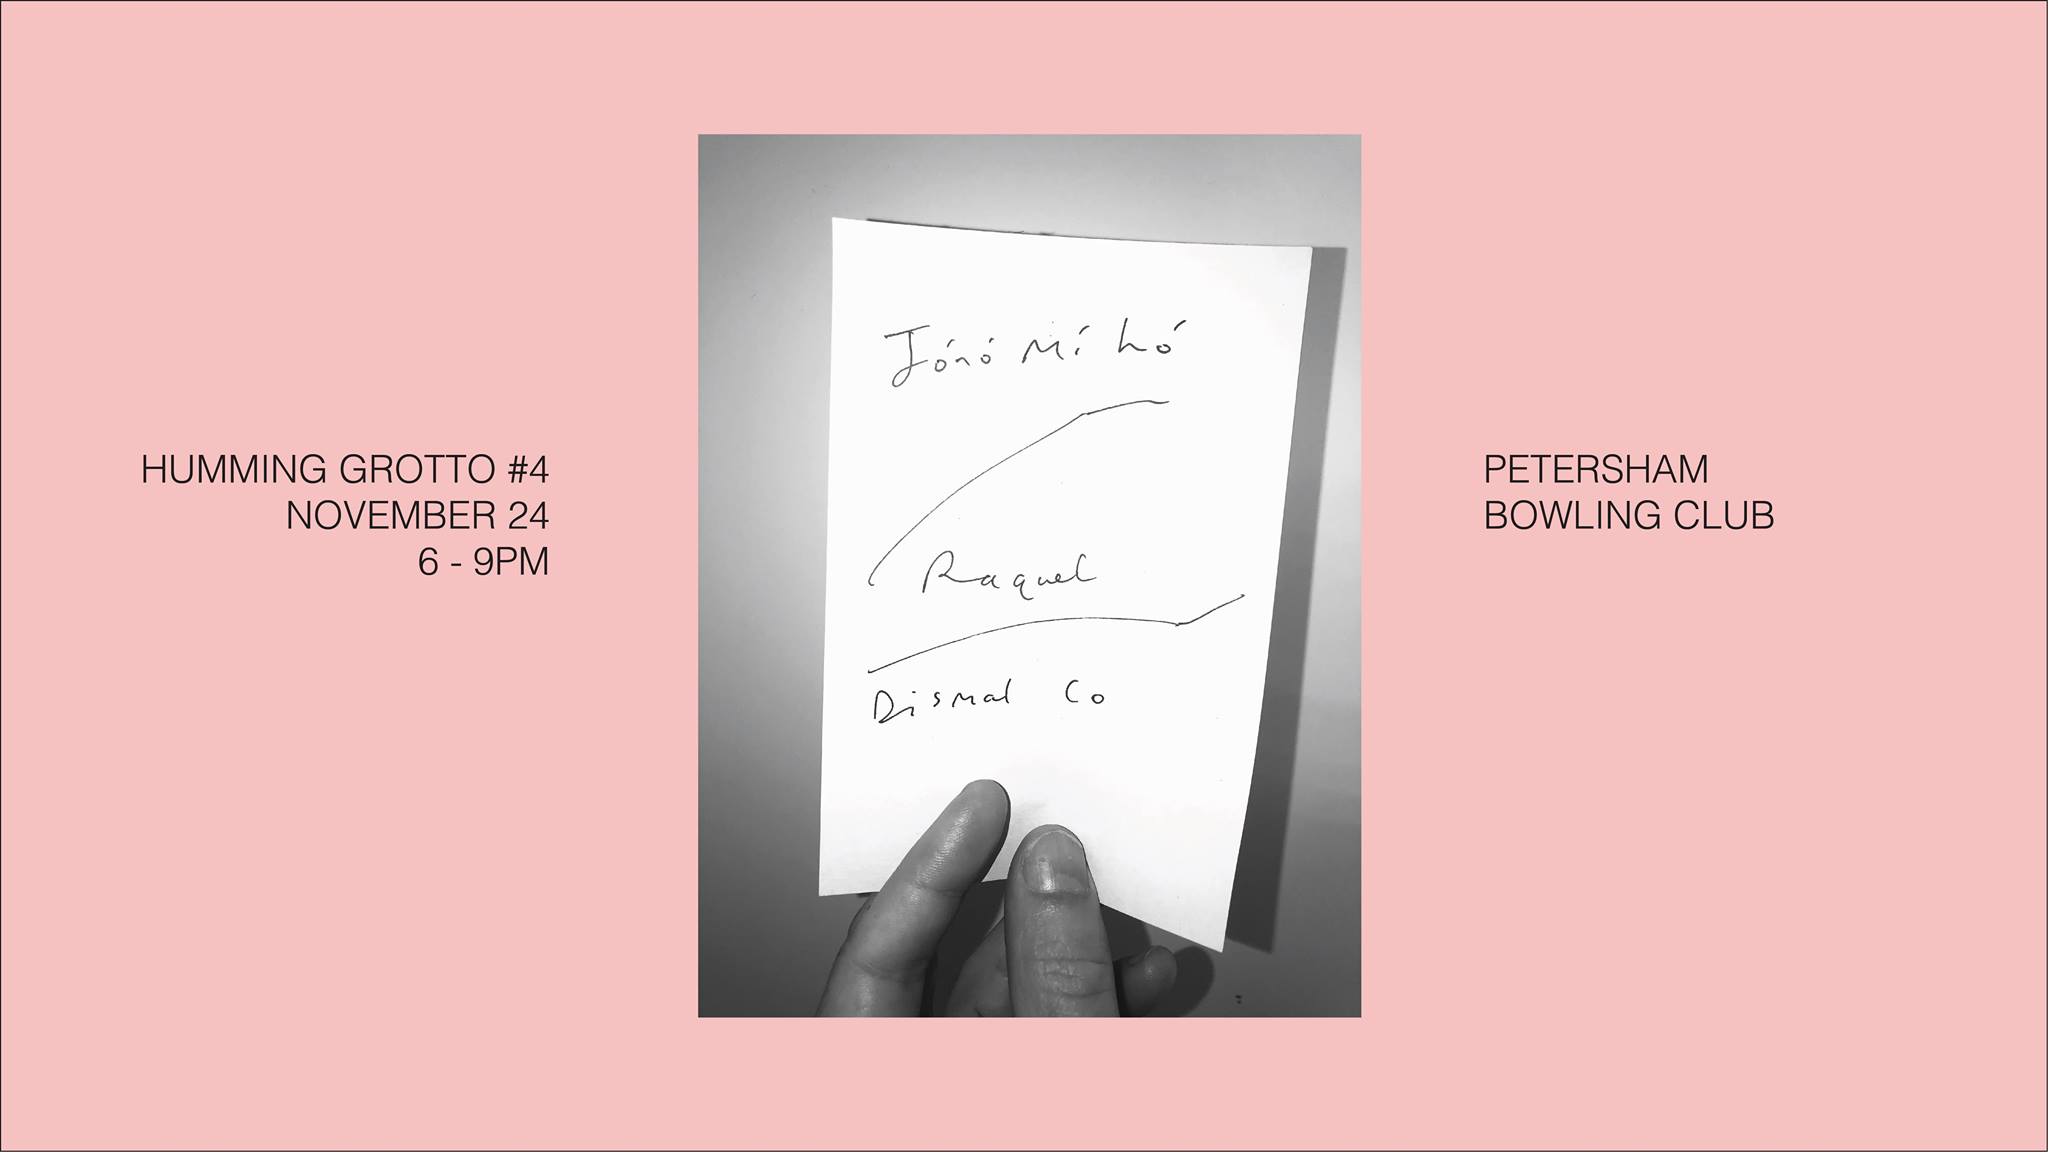 HUMMING GROTTO #4
NOVEMBER 24
6 - 9PM
Jónó Mí Ló
Raquel
Dismal Co
PETERSHAM
BOWLING CLUB